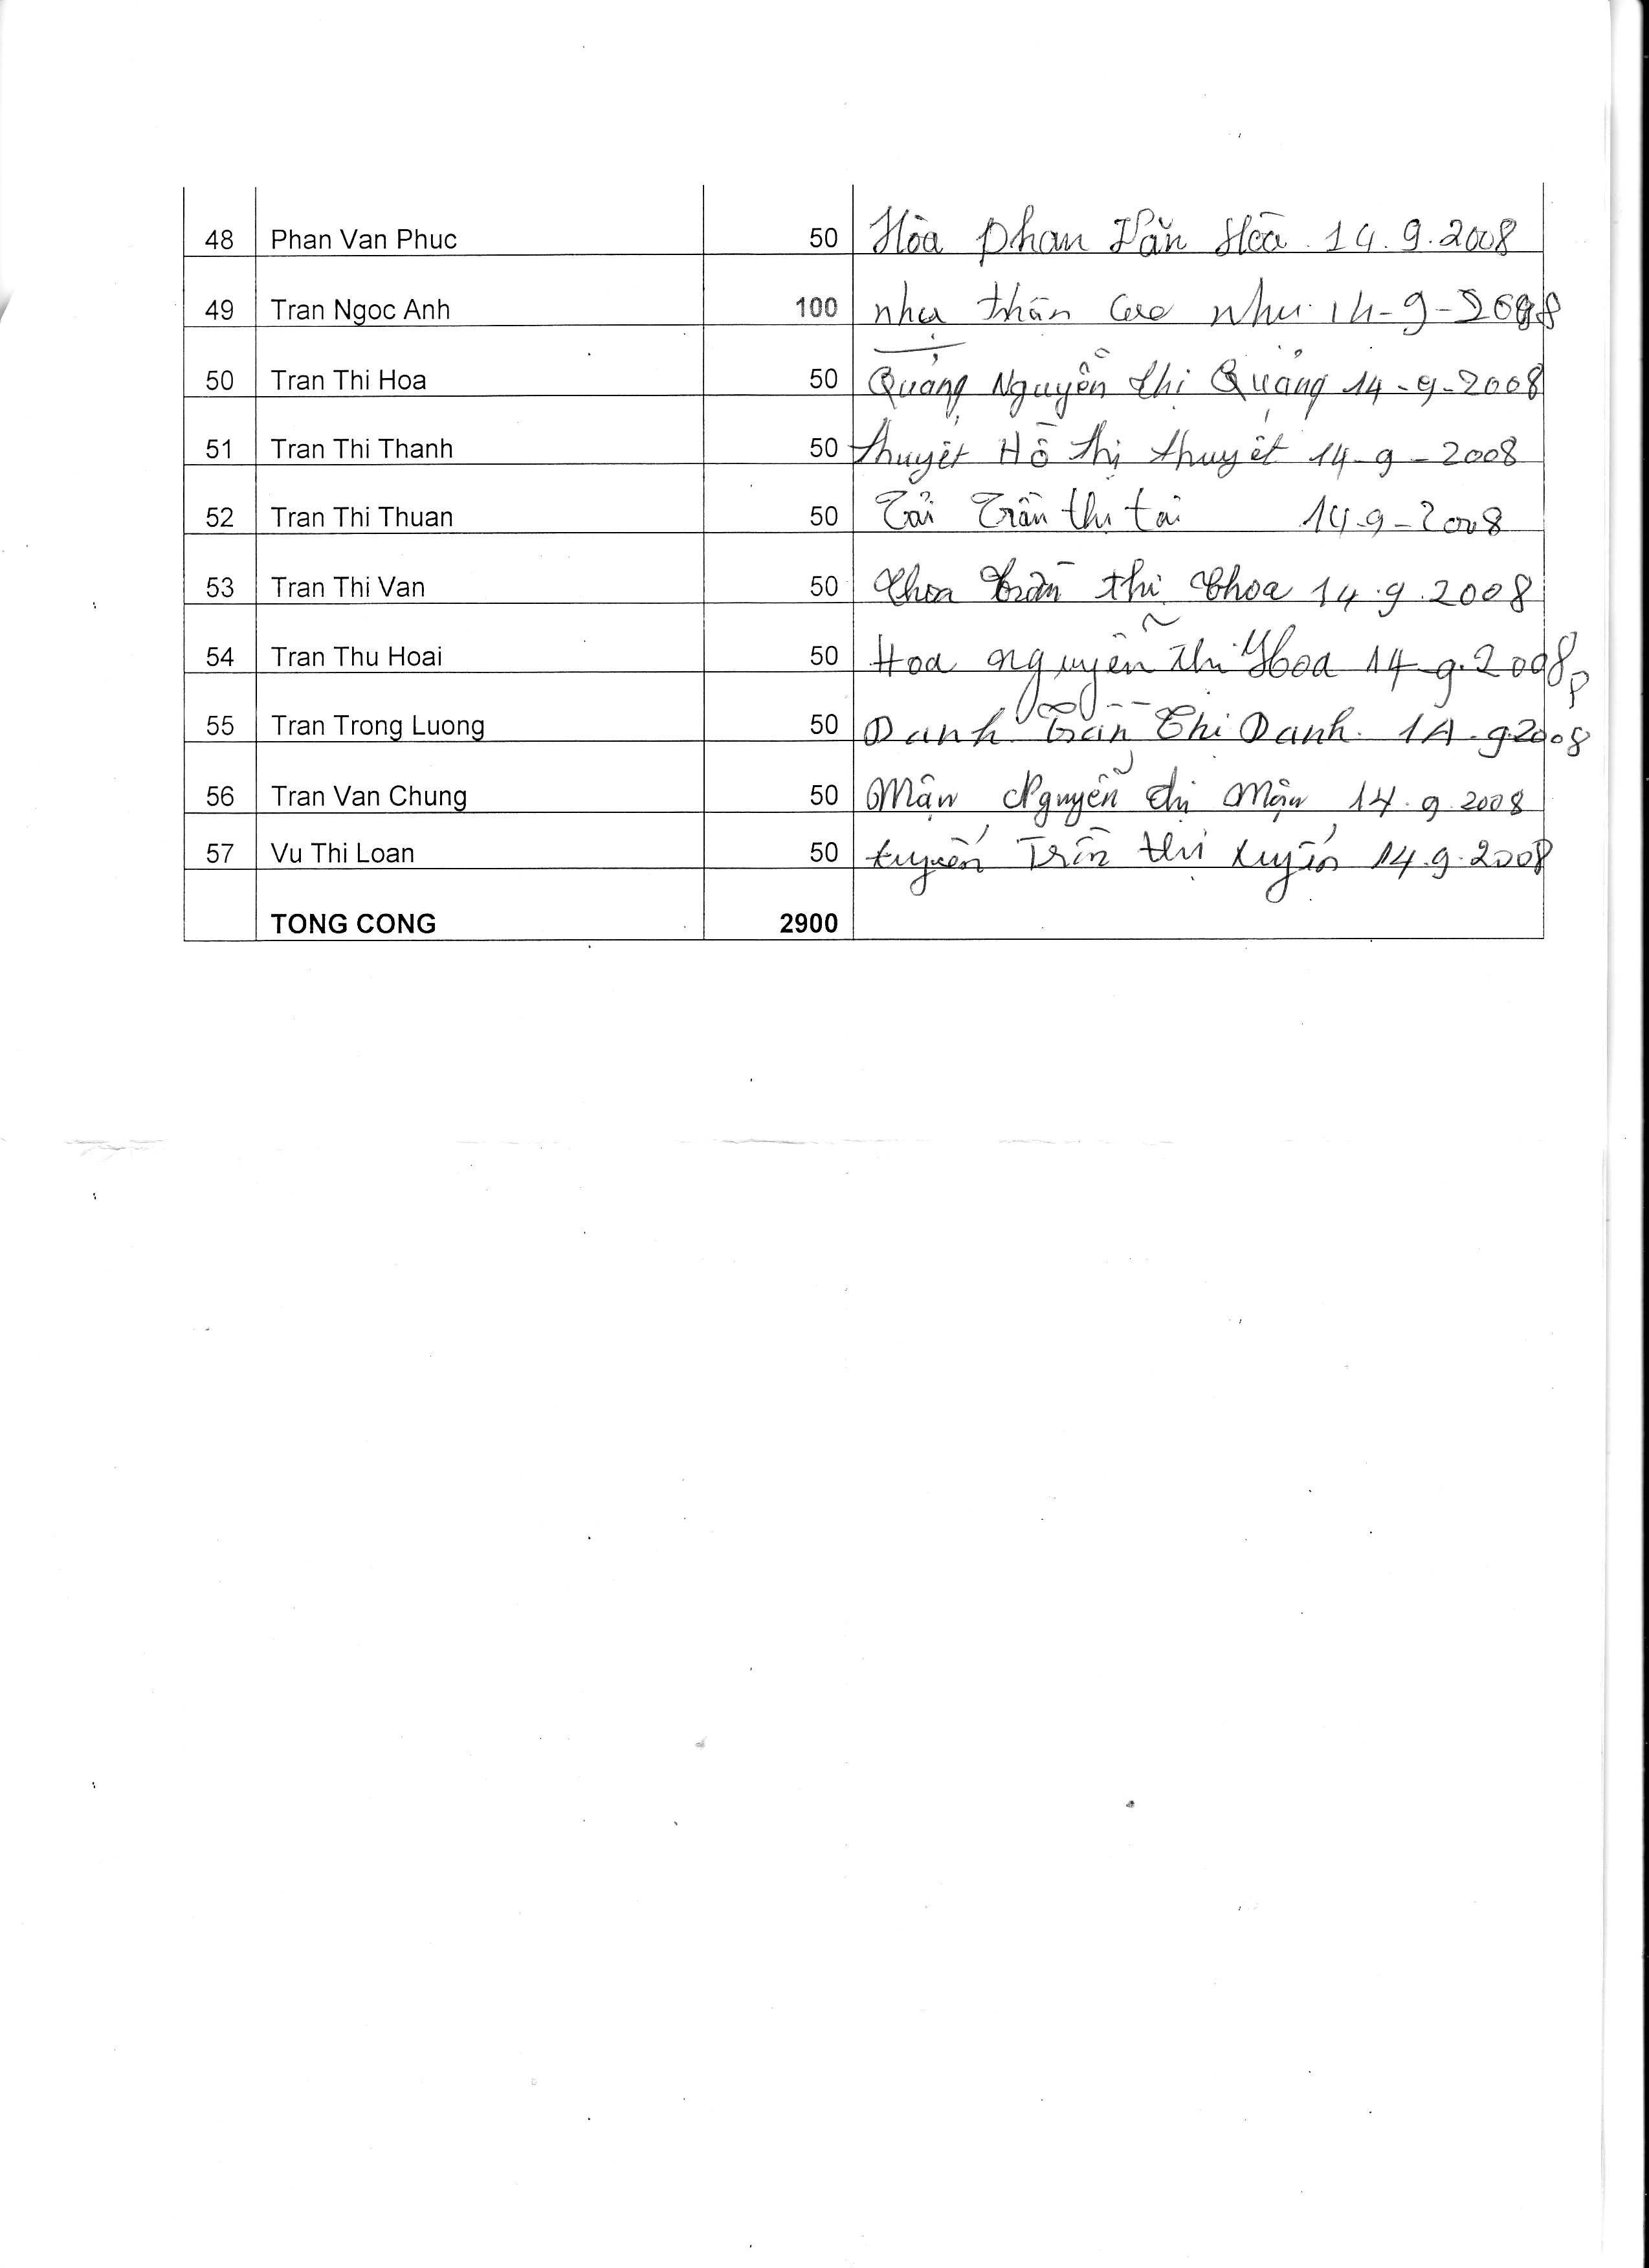 48 Phan Van Phuc 50 Hòa Phan Văn Hòa 14.9.2008
49 Tran Ngoc Anh 100 như trần như 14-9-2008
50 Tran Thi Hoa 50 Quảng Nguyễn thị Quảng 14-9-2008
51 Tran Thi Thanh 50 thuyết Hồ thị thuyết 14-9-2008
52 Tran Thi Thuan 50 Tải Trần thị tải 14-9-2008
53 Tran Thi Van 50 Thoa trần thị thoa 14.9.2008
54 Tran Thu Hoai 50 Hoa nguyễn thị Hoa 14-9.2008
55 Tran Trong Luong 50 Danh trần Thi Danh. 14.9.2008
56 Tran Van Chung 50 Mận Nguyễn thị Mận 14.9.2008
57 Vu Thi Loan 50 Trần thị 14.9.2008
TONG CONG 2900